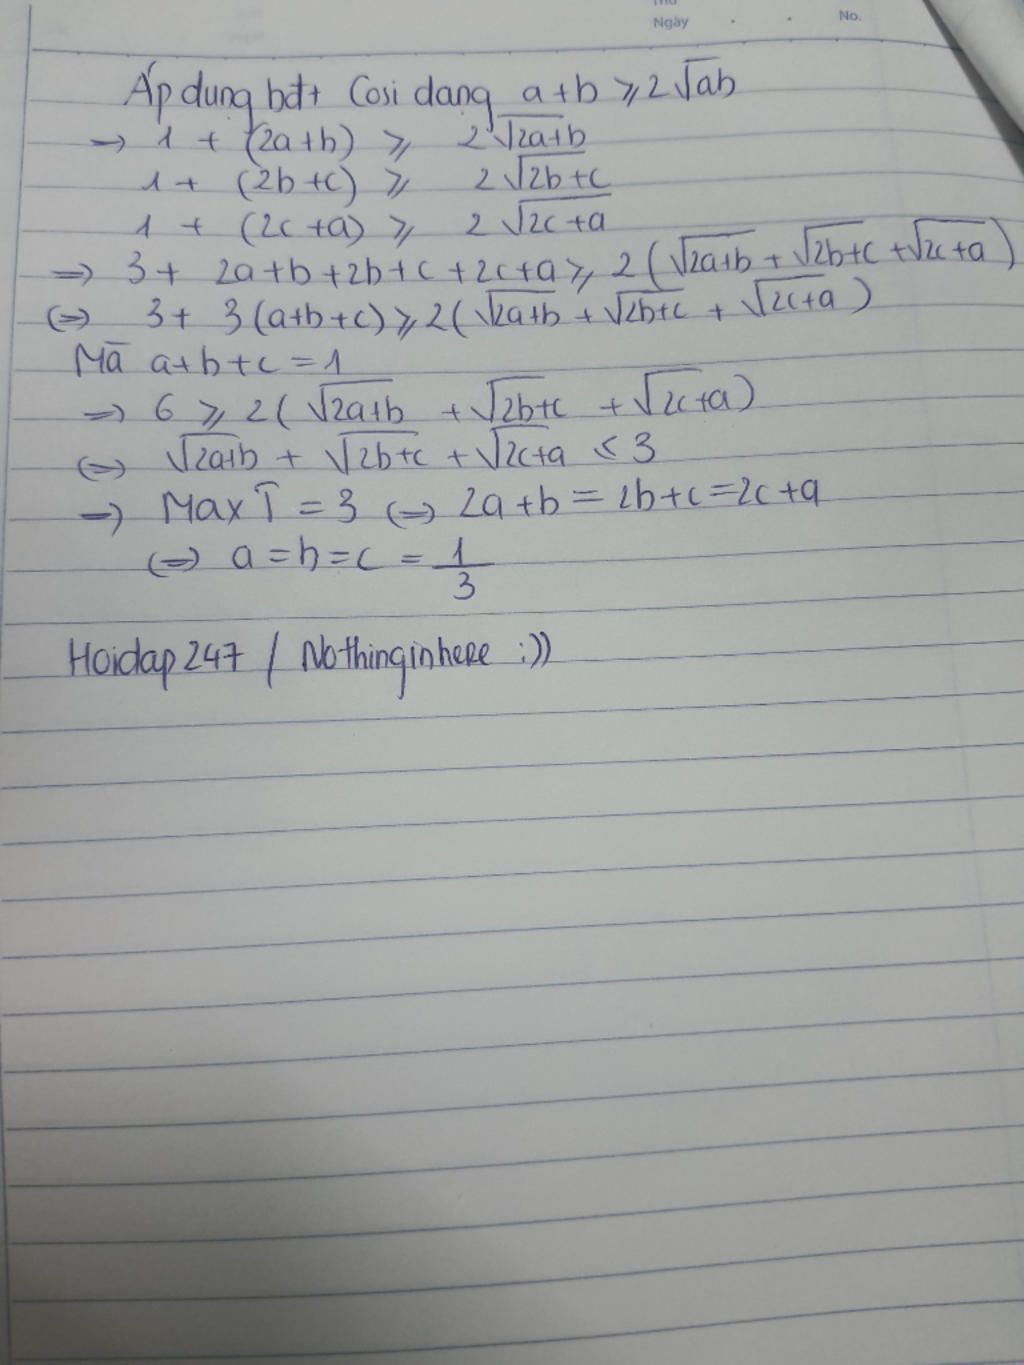 Ngày . . No.
Áp dung bđt Cosi dang a+b ⩾ 2√ab
→ 1 + (2a+b) ⩾ 2√2a+b
1 + (2b+c) ⩾ 2√2b+c
1 + (2c+a) ⩾ 2√2c+a
⇒ 3 + 2a+b+2b+c+2c+a ⩾ 2(√2a+b + √2b+c + √2c+a)
⇔ 3 + 3(a+b+c) ⩾ 2(√2a+b + √2b+c + √2c+a)
Mà a+b+c = 1
⇒ 6 ⩾ 2(√2a+b + √2b+c + √2c+a)
⇔ √2a+b + √2b+c + √2c+a ≤ 3
⇒ Max T = 3 ⇔ 2a+b = 2b+c = 2c+a
⇔ a = b = c = 1/3
Hoidap247 / Nothinginhere :))